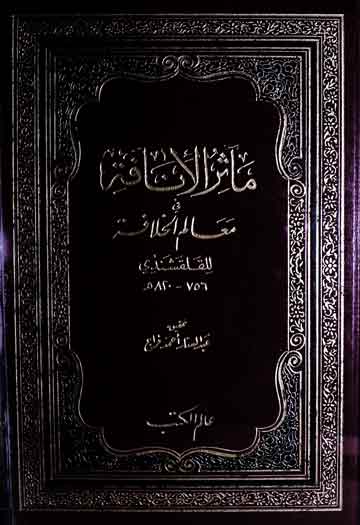 مآثر الأنافة
في
معالم الخلافة
للقلقشندي
٧٥٦ - ٨٢٠ هـ
تحقيق
عبد الستار أحمد فراج
عالم الكتب